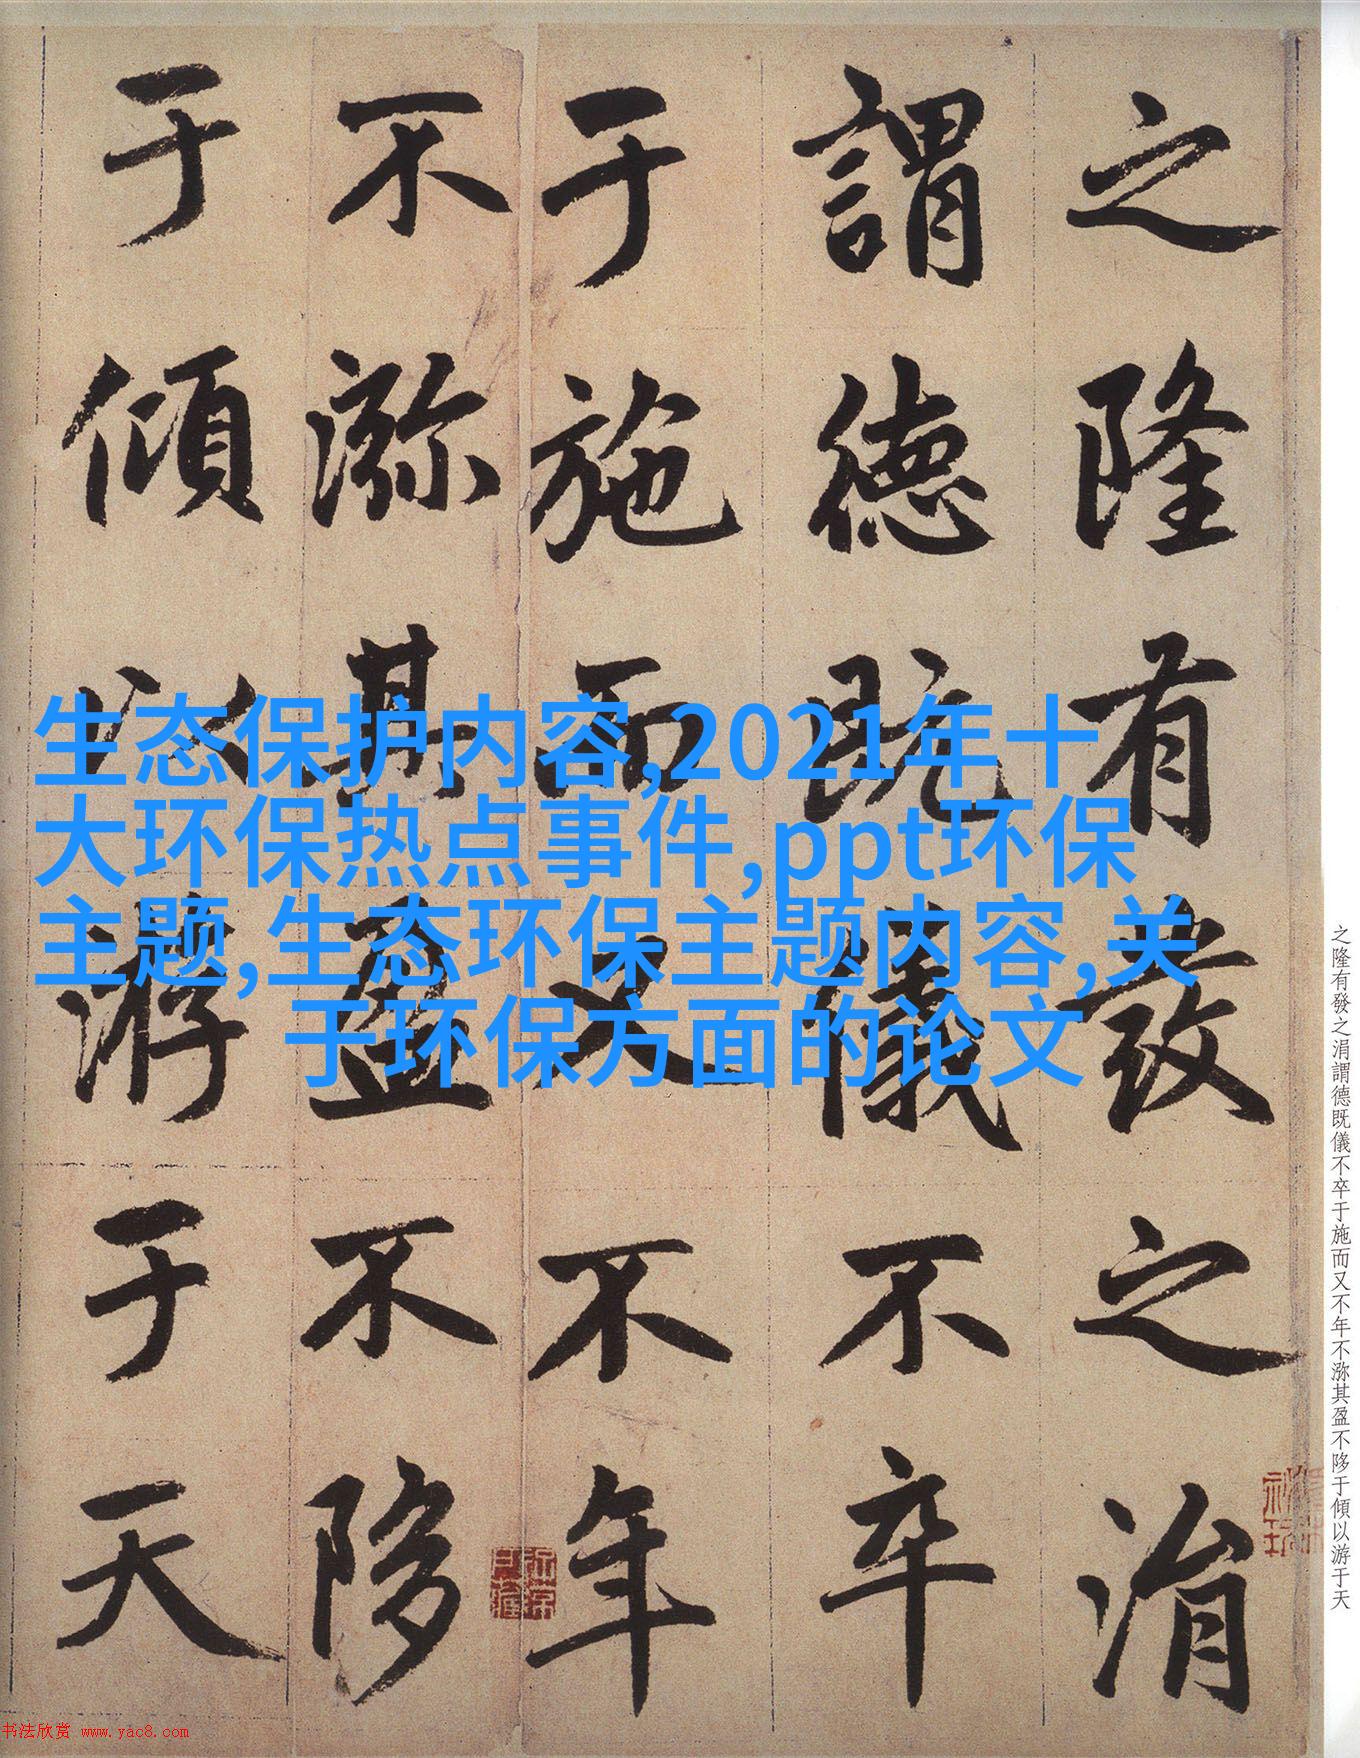 之隆有發之涓
謂德既儀不卒
于施而又不年
不濔其盈不陊
于傾以游于天
生态保护内容,2021年十
大环保热点事件,ppt环保
主题,生态环保主题内容,关
于环保方面的论文
之隆有發之涓謂德既儀不卒于施而又不年不濔其盈不陊于傾以游于天
书法欣赏 www.yac8.com